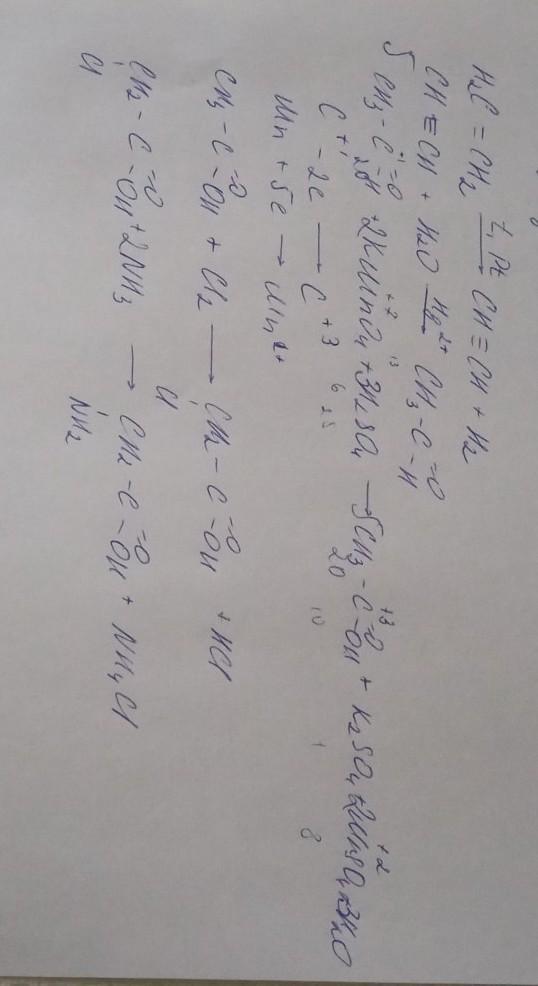 H2C = CH2 —t, Pt→ CH ≡ CH + H2
CH ≡ CH + H2O —Hg2+→ CH3 - C =O -H
5 CH3 - C+1 =O -H + 2KMn+7O4 + 3H2SO4 → 5CH3 - C+3 =O -OH + K2SO4 + 2Mn+2SO4 + 3H2O
C+1 - 2e → C+3
Mn + 5e → Mn2+
CH3 - C =O -OH + Cl2 → CH2 - C =O -OH + HCl
Cl
CH2 - C =O -OH + 2NH3 → CH2 - C =O -OH + NH4Cl
Cl NH2